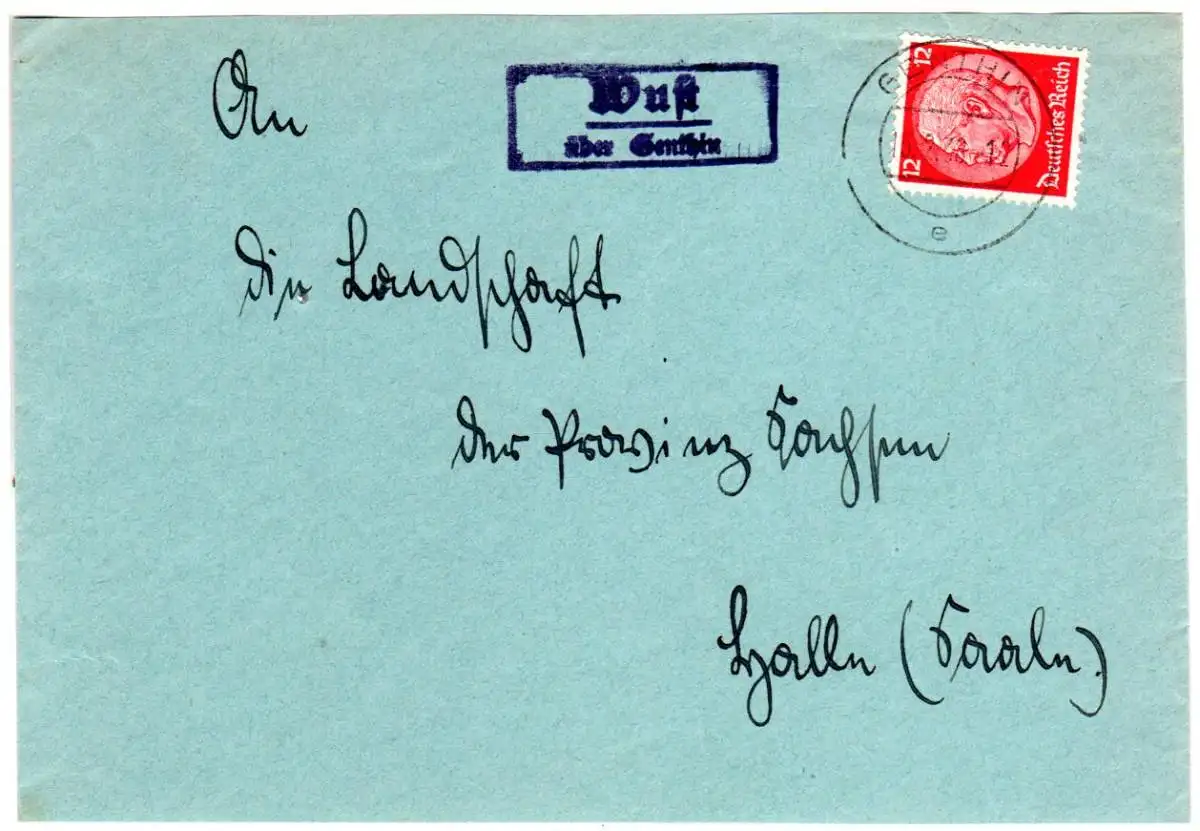 An
Wust
über Genthin
12
12
Deutsches Reich
GENTHIN
e
die Landschaft
der Provinz Sachsen
Halle (Saale)